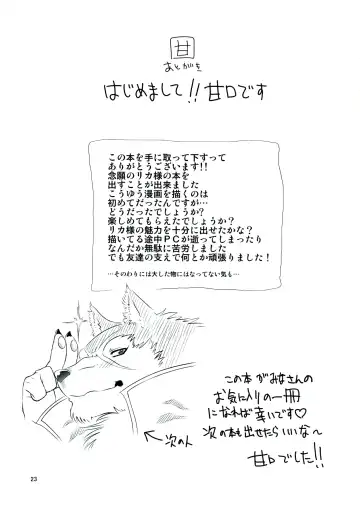 甘
あとがき
はじめまして!!甘口です
この本を手に取って下すって
ありがとうございます!!
念願のリカ様の本を
出すことが出来ました
こうゆう漫画を描くのは
初めてだったんですが…
どうだったでしょうか?
楽しめてもらえたでしょうか?
リカ様の魅力を十分に出せたかな?
描いてる途中PCが逝ってしまったり
なんだか無駄に苦労しました
でも友達の支えで何とか頑張りました!
…そのわりには大した物にはなってない気も…
この本がみなさんの
お気に入りの一冊
になれば幸いです♡
次の本も出せたらいいな〜
甘口でした!!
次の人
23